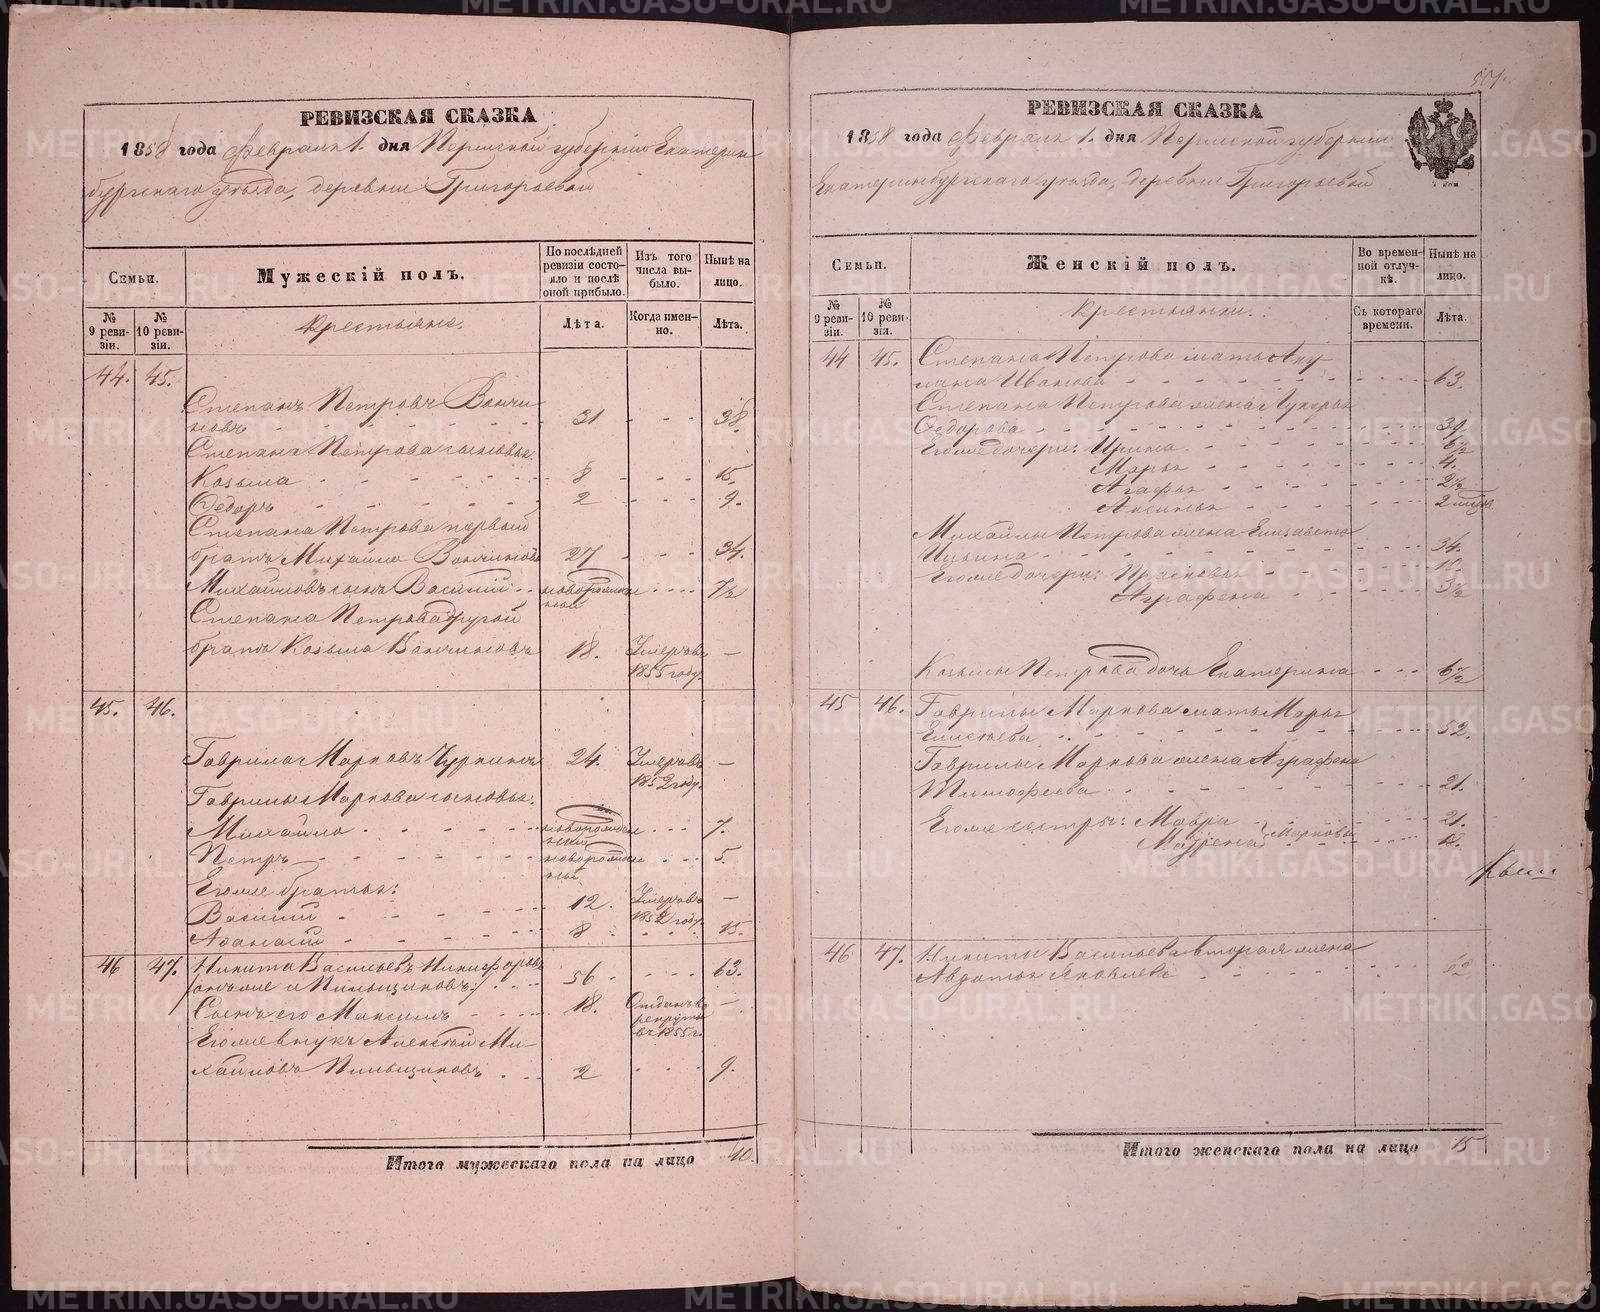 РЕВИЗСКАЯ СКАЗКА
1858 года Февраля 1. дня Пермской губернiи Екатерин
бургскаго уѣзда, деревни Григорьевой
Семьи.
Мужескiй полъ.
По послѣдней ревизiи состояло и послѣ оной прибыло.
Изъ того числа выбыло.
Нынѣ на лицо.
№ 9 ревизiи.
№ 10 ревизiи.
Крестьяне.
Лѣта.
Когда именно.
Лѣта.
44. 45.
Степанъ Петровъ
31 38.
Степана Петрова сыновья:
Козьма 8 15.
Ѳедоръ 2 9.
Степана Петрова первый
братъ Михайло 27 34.
Михайловъ сынъ Василiй новорожден 7½
ный
Степана Петрова другой
братъ Козьма 18. Умеръ въ —
1855 году.
45. 46.
Гаврила Марковъ Чуркинъ 24. Умеръ въ —
1852 году.
Гаврилы Маркова сыновья:
Михайло новорожден 7.
ный
Петръ новорожден 5.
ный
Его же братья:
Василiй 12. Умеръ въ —
1852 году.
Аѳанасiй 8 15.
46 47. Никита Васильевъ Никифоровъ
онъ же и Пильщиковъ 56 63.
Сынъ его Максимъ 18. Отданъ въ —
рекруты
въ 1855 г.
Его же внукъ Алексѣй Ми-
хайловъ Пильщиковъ 2 9.
Итого мужескаго пола на лицо 10.
501.
РЕВИЗСКАЯ СКАЗКА
1858 года Февраля 1. дня Пермской губернiи
Екатеринбургскаго уѣзда, деревни Григорьевой
Семьи.
Женскiй полъ.
Во временной отлучкѣ.
Нынѣ на лицо.
№ 9 ревизiи.
№ 10 ревизiи.
Крестьянки.
Съ котораго времени.
Лѣта.
44 45. Степана Петрова мать Аку
лина Иванова 63.
Степана Петрова жена Лукерья
Ѳедорова 39.
Его же дочери: Ирина 6½
Марья 4.
Агафья 2½
Аксинья
Михайлы Петрова жена Елизавета
Ильина 34.
Его же дочери: Прасковья
Аграфена 3½
Козьмы Петрова дочь Екатерина 6½
45 46. Гаврилы Маркова мать Марья
Елисѣева 52.
Гаврилы Маркова жена Аграфена
Тимофеева 21.
Его же сестры: Мавра 21.
Матрена Марковы
46 47. Никиты Васильева вторая жена
Авдотья Яковлева 62
Итого женскаго пола на лицо 15
METRIKI.GASO-URAL.RU